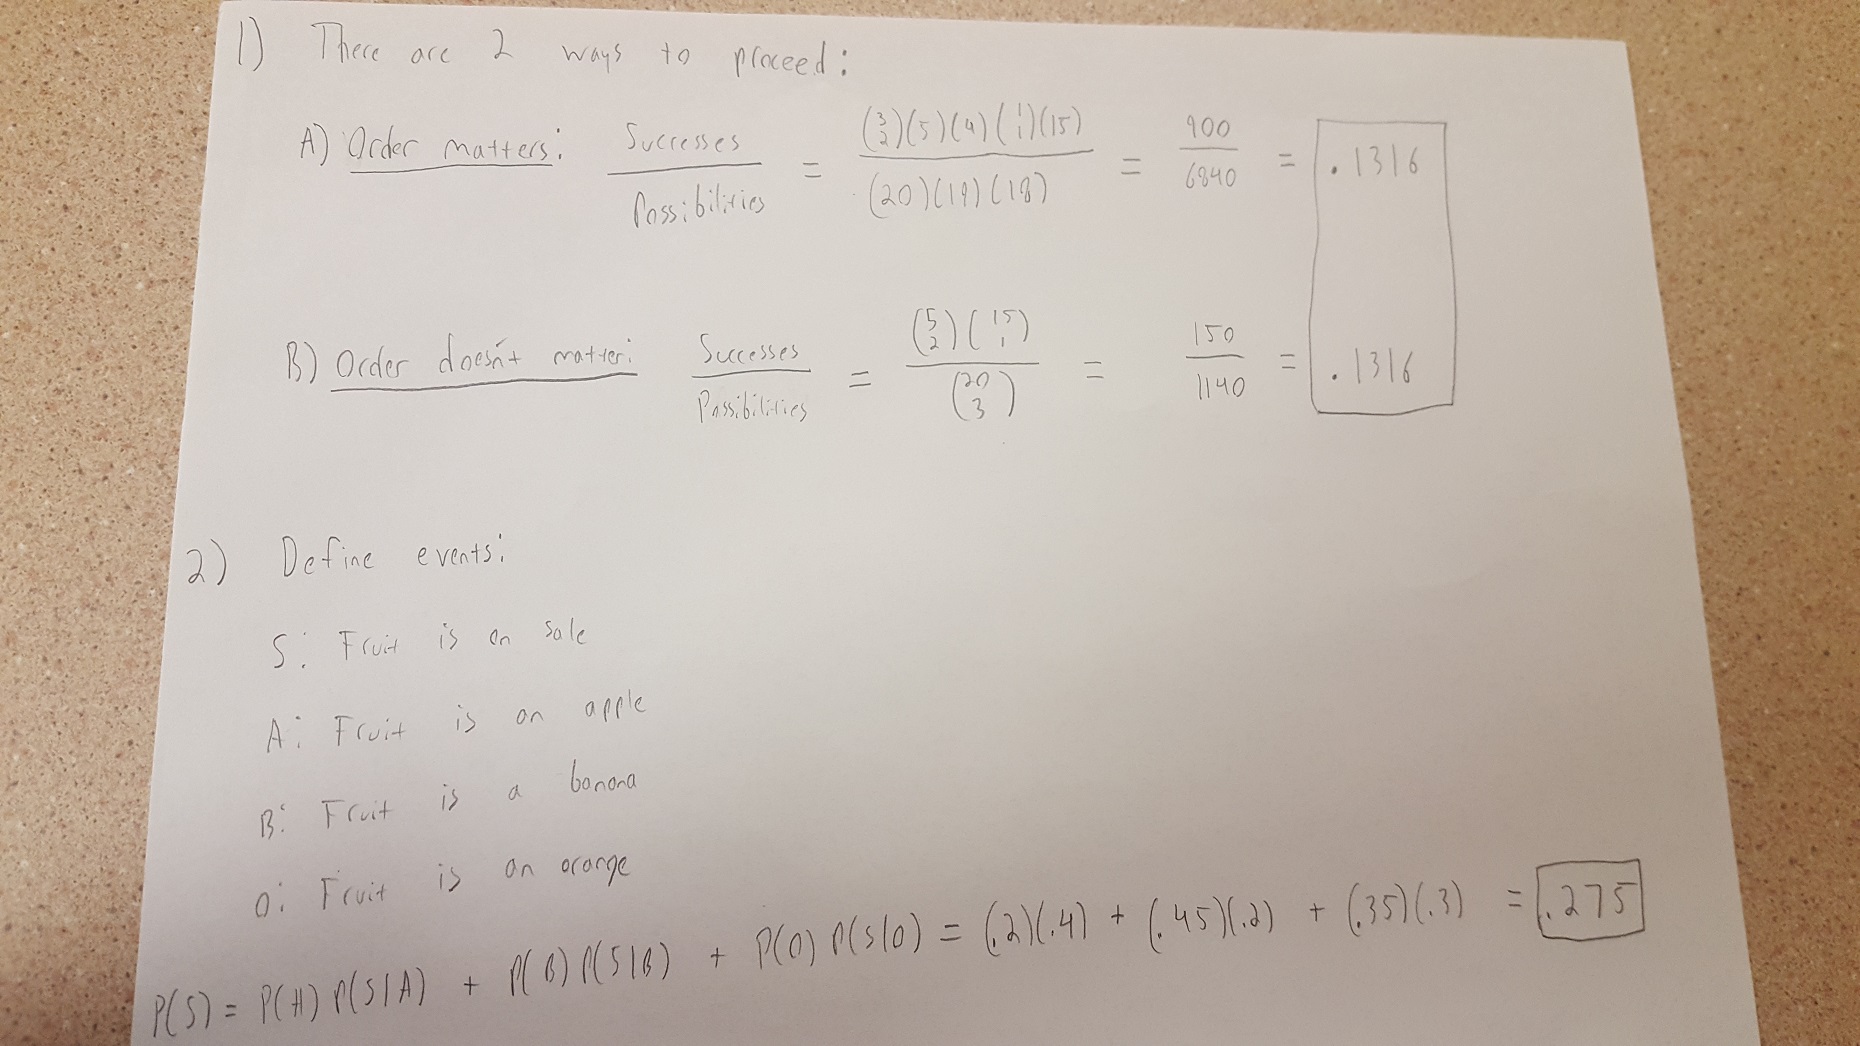 1) There are 2 ways to proceed:
A) Order matters: Successes / Possibilities = (3 2)(5)(4)(1 1)(15) / (20)(19)(18) = 900 / 6840 = .1316
B) Order doesn't matter: Successes / Possibilities = (5 2)(15 1) / (20 3) = 150 / 1140 = .1316
2) Define events:
S: Fruit is on sale
A: Fruit is an apple
B: Fruit is a banana
O: Fruit is an orange
P(S) = P(A) P(S|A) + P(B) P(S|B) + P(O) P(S|O) = (.2)(.4) + (.45)(.2) + (.35)(.3) = .275